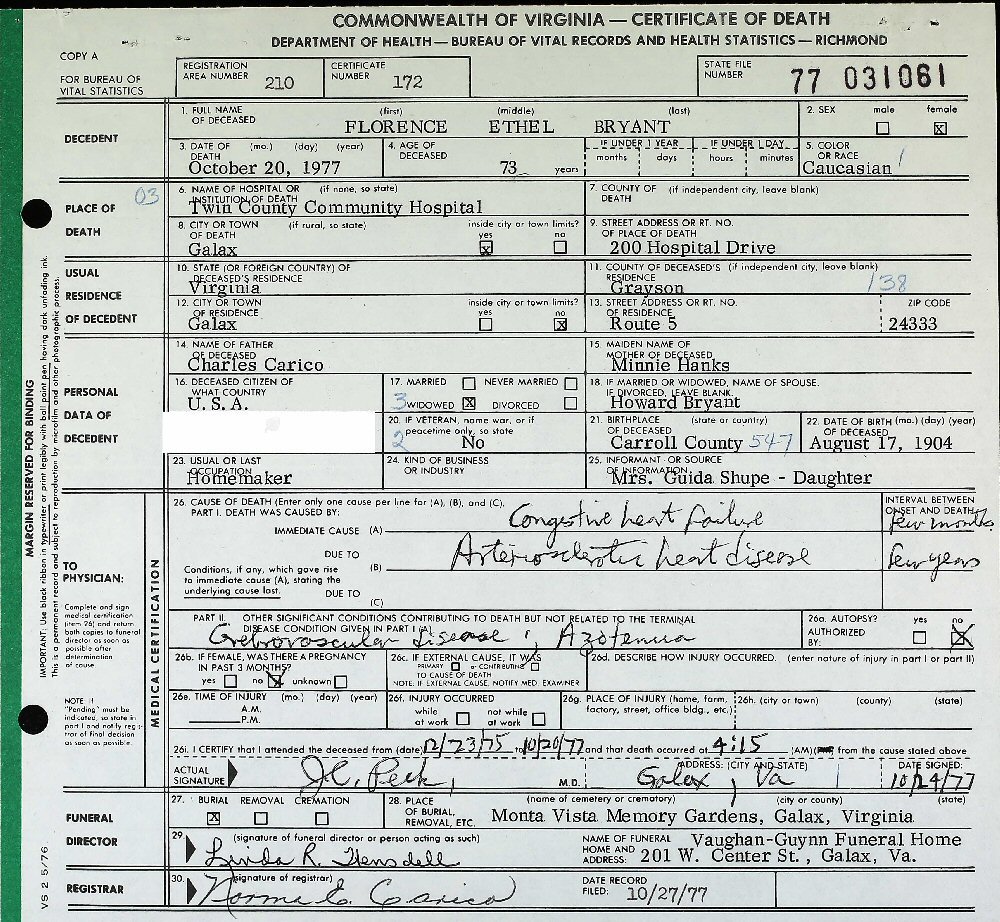 COMMONWEALTH OF VIRGINIA — CERTIFICATE OF DEATH
DEPARTMENT OF HEALTH — BUREAU OF VITAL RECORDS AND HEALTH STATISTICS — RICHMOND
COPY A
FOR BUREAU OF VITAL STATISTICS
REGISTRATION AREA NUMBER 210
CERTIFICATE NUMBER 172
STATE FILE NUMBER 77 031061
DECEDENT
1. FULL NAME OF DECEASED (first) (middle) (last)
FLORENCE ETHEL BRYANT
2. SEX male female X
3. DATE OF DEATH (mo.) (day) (year)
October 20, 1977
4. AGE OF DECEASED
73 years
IF UNDER 1 YEAR months days
IF UNDER 1 DAY hours minutes
5. COLOR OR RACE
Caucasian 1
PLACE OF DEATH
03
6. NAME OF HOSPITAL OR INSTITUTION OF DEATH (if none, so state)
Twin County Community Hospital
7. COUNTY OF DEATH (if independent city, leave blank)
8. CITY OR TOWN OF DEATH (if rural, so state)
Galax
inside city or town limits? yes X no
9. STREET ADDRESS OR RT. NO. OF PLACE OF DEATH
200 Hospital Drive
USUAL RESIDENCE OF DECEDENT
10. STATE (OR FOREIGN COUNTRY) OF DECEASED'S RESIDENCE
Virginia
11. COUNTY OF DECEASED'S RESIDENCE (if independent city, leave blank)
Grayson 138
12. CITY OR TOWN OF RESIDENCE
Galax
inside city or town limits? yes no X
13. STREET ADDRESS OR RT. NO. OF RESIDENCE
Route 5
ZIP CODE
24333
PERSONAL DATA OF DECEDENT
14. NAME OF FATHER OF DECEASED
Charles Carico
15. MAIDEN NAME OF MOTHER OF DECEASED
Minnie Hanks
16. DECEASED CITIZEN OF WHAT COUNTRY
U. S. A.
17. MARRIED NEVER MARRIED
3 WIDOWED X DIVORCED
18. IF MARRIED OR WIDOWED, NAME OF SPOUSE. IF DIVORCED, LEAVE BLANK.
Howard Bryant
20. IF VETERAN, name war, or if peacetime only, so state
2 No
21. BIRTHPLACE OF DECEASED (state or country)
Carroll County 547
22. DATE OF BIRTH OF DECEASED (mo.) (day) (year)
August 17, 1904
23. USUAL OR LAST OCCUPATION
Homemaker
24. KIND OF BUSINESS OR INDUSTRY
25. INFORMANT OR SOURCE OF INFORMATION
Mrs. Guida Shupe - Daughter
MARGIN RESERVED FOR BINDING
IMPORTANT: Use black ribbon in typewriter or print legibly with ball point pen having dark unfading ink.
This is a permanent record and subject to reproduction by microfilm and other photographic process.
TO PHYSICIAN:
Complete and sign medical certification (item 26) and return both copies to funeral director as soon as possible after determination of cause
NOTE: If "Pending" must be indicated, so state in part I and notify registrar of final decision as soon as possible.
MEDICAL CERTIFICATION
26. CAUSE OF DEATH (Enter only one cause per line for (A), (B), and (C).
PART I. DEATH WAS CAUSED BY:
INTERVAL BETWEEN ONSET AND DEATH
IMMEDIATE CAUSE (A) Congestive heart failure few months
DUE TO
(B) Arteriosclerotic heart disease few years
Conditions, if any, which gave rise to immediate cause (A), stating the underlying cause last.
DUE TO
(C)
PART II. OTHER SIGNIFICANT CONDITIONS CONTRIBUTING TO DEATH BUT NOT RELATED TO THE TERMINAL DISEASE CONDITION GIVEN IN PART I (A)
Cerebrovascular disease, Azotemia
26a. AUTOPSY? AUTHORIZED BY: yes no X
26b. IF FEMALE, WAS THERE A PREGNANCY IN PAST 3 MONTHS?
yes no X unknown
26c. IF EXTERNAL CAUSE, IT WAS
PRIMARY or CONTRIBUTING
TO CAUSE OF DEATH
NOTE: IF EXTERNAL CAUSE, NOTIFY MED. EXAMINER
26d. DESCRIBE HOW INJURY OCCURRED. (enter nature of injury in part I or part II)
26e. TIME OF INJURY (mo.) (day) (year)
A.M.
P.M.
26f. INJURY OCCURRED
while at work not while at work
26g. PLACE OF INJURY (home, farm, factory, street, office bldg., etc.)
26h. (city or town) (county) (state)
26i. I CERTIFY that I attended the deceased from (date) 12/23/75 to 10/20/77 and that death occurred at 4:15 (AM) from the cause stated above
ACTUAL SIGNATURE J.C. Peck, M.D.
ADDRESS: (CITY AND STATE)
Galax, Va
DATE SIGNED:
10/24/77
FUNERAL DIRECTOR
27. BURIAL REMOVAL CREMATION
X
28. PLACE OF BURIAL, REMOVAL, ETC. (name of cemetery or crematory) (city or county) (state)
Monta Vista Memory Gardens, Galax, Virginia
29. (signature of funeral director or person acting as such)
Linda R. Hensdell
NAME OF FUNERAL HOME AND ADDRESS: Vaughan-Guynn Funeral Home
201 W. Center St., Galax, Va.
REGISTRAR
30. (signature of registrar)
Norma C. Carico
DATE RECORD FILED: 10/27/77
VS 2 5/76